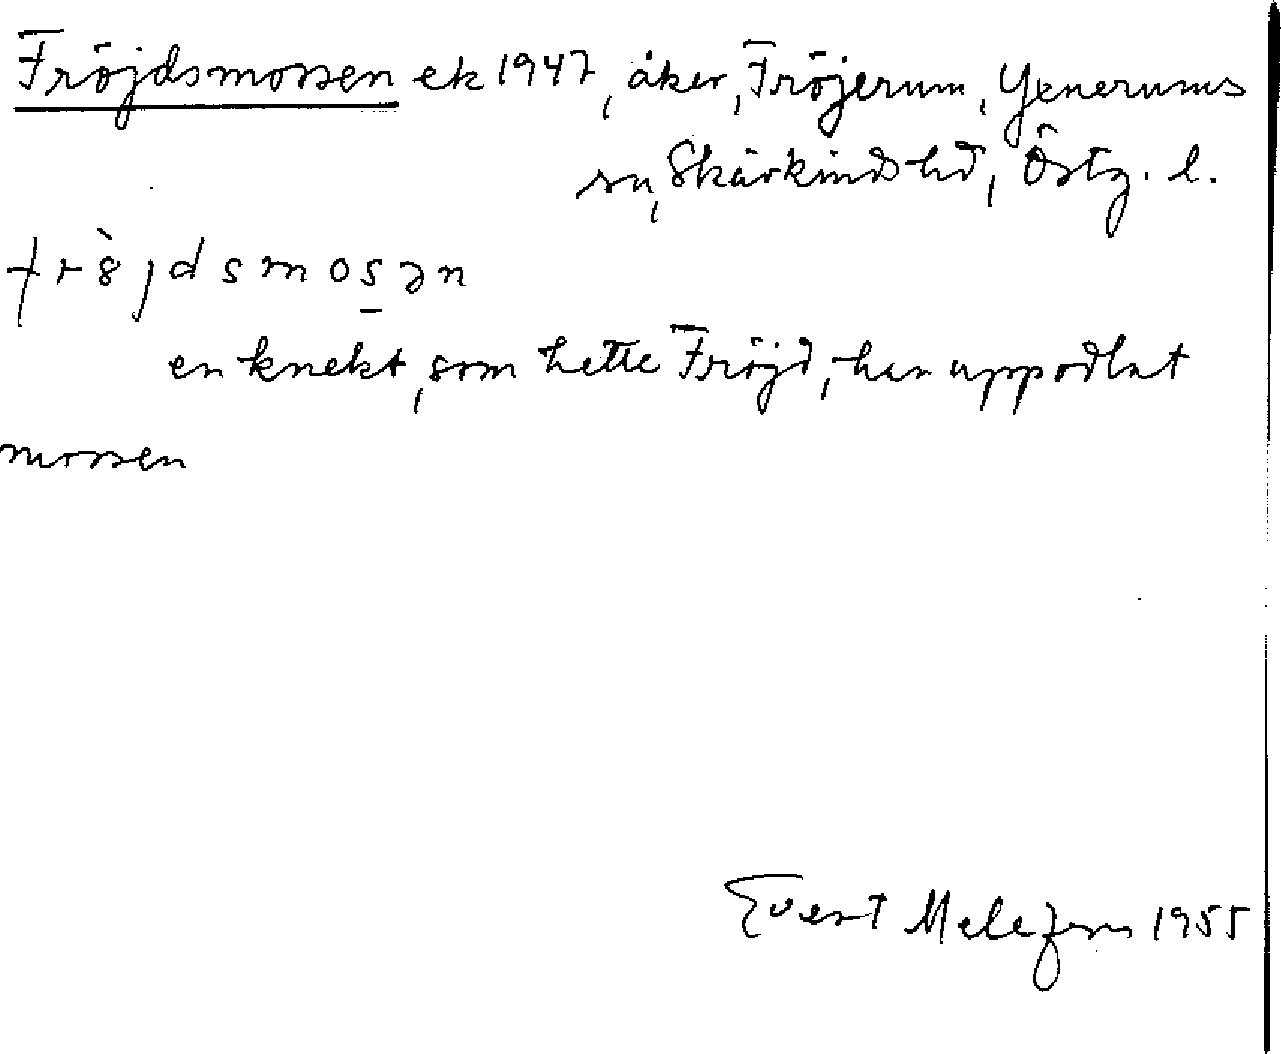 Fröjdsmossen ek 1947, åker, Fröjerum, Yxnerums
sn, Skärkinds hd, Östg. l.
frö̀jdsmos̲ən
en knekt, som hette Fröjd, har uppodlat
mossen
Evert Melefors 1955